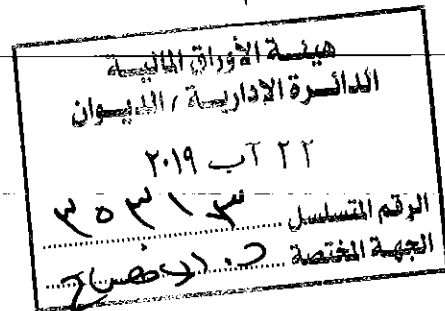 هيئة الأوراق المالية
الدائرة الادارية / الديوان
٢٢ آب ٢٠١٩
الرقم المتسلسل ٣٥٣١٣
الجهة المختصة د. الافصاح